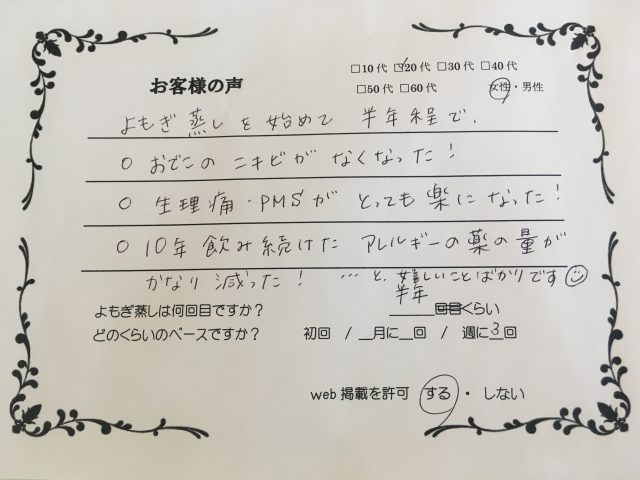 お客様の声
□10代 ☑20代 □30代 □40代
□50代 □60代 女性・男性
よもぎ蒸しを始めて 半年程で、
○ おでこの ニキビが なくなった！
○ 生理痛・PMSが とっても楽になった！
○ 10年飲み続けた アレルギーの薬の量が
かなり 減った！ …と、嬉しいことばかりです
よもぎ蒸しは何回目ですか？ 半年 回目くらい
どのくらいのペースですか？ 初回 / __月に__回 / 週に3回
web掲載を許可 する ・ しない